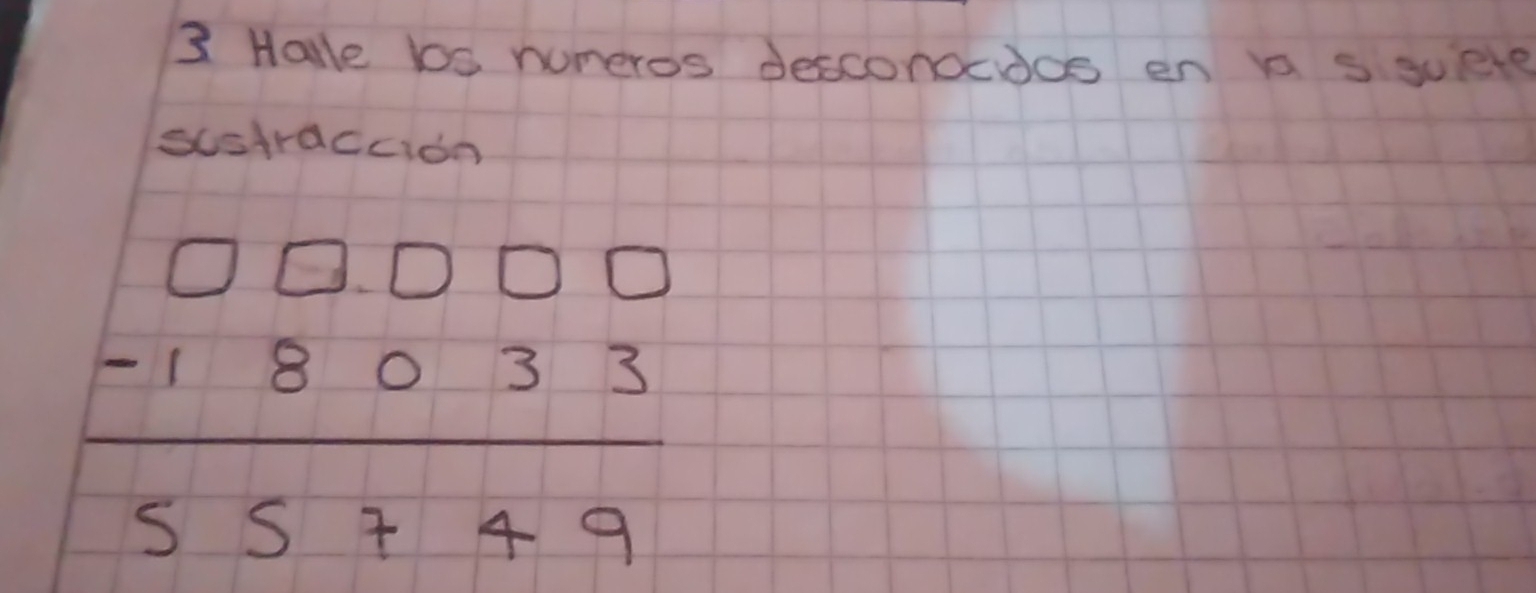 3 Halle los numeros desconocidos en la siguiete
sustracción
□ □. □ □ □
- 1 8 0 3 3
5 5 7 4 9